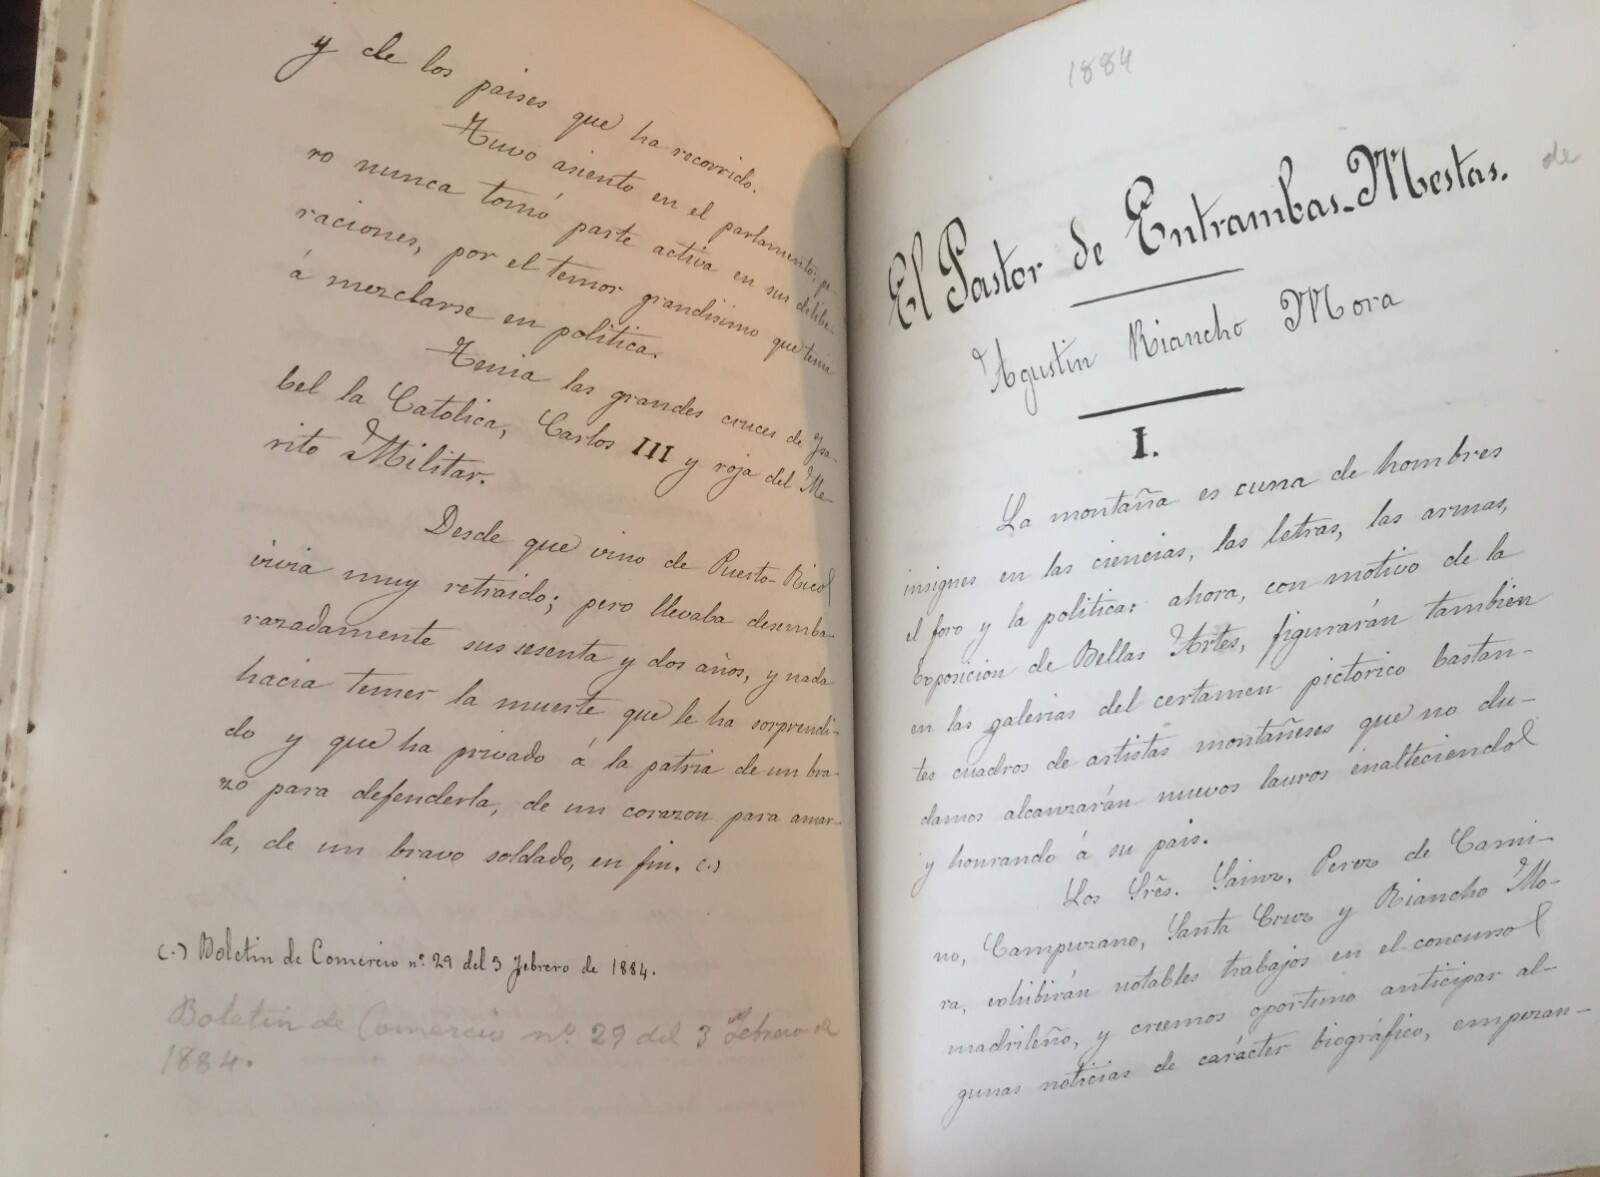 y de los paises que ha recorrido.
Tuvo asiento en el parlamento; pe-
ro nunca tomó parte activa en sus delibe-
raciones, por el temor grandisimo que tenia
á mezclarse en politica.
Tenia las grandes cruces de Isa-
bel la Catolica, Carlos III y roja del Me-
rito Militar.
Desde que vino de Puerto-Rico
vivia muy retraido; pero llevaba desemba-
razadamente sus sesenta y dos años, y nada
hacia temer la muerte que le ha sorprendi-
do y que ha privado á la patria de un bra-
zo para defenderla, de un corazon para amar-
la, de un bravo soldado, en fin. (.)
(.) Boletin de Comercio nº. 29 del 3 febrero de 1884.
Boletin de Comercio nº. 29 del 3 Febrero de
1884.
1884
El Pastor de Entrambas-Mestas. de
Agustin Riancho Mora
I.
La montaña es cuna de hombres
insignes en las ciencias, las letras, las armas,
el foro y la politica: ahora, con motivo de la
Exposición de Bellas Artes, figurarán también
en las galerias del certamen pictórico bastan-
tes cuadros de artistas montañeses que no du-
damos alcanzarán nuevos lauros enalteciendo
y honrando á su pais.
Los Srês. Sainz, Perez de Cami-
no, Campuzano, Santa Cruz y Riancho Mo-
ra, exhibirán notables trabajos en el concurso
madrileño, y creemos oportuno anticipar al-
gunas noticias de carácter biográfico, empezan-